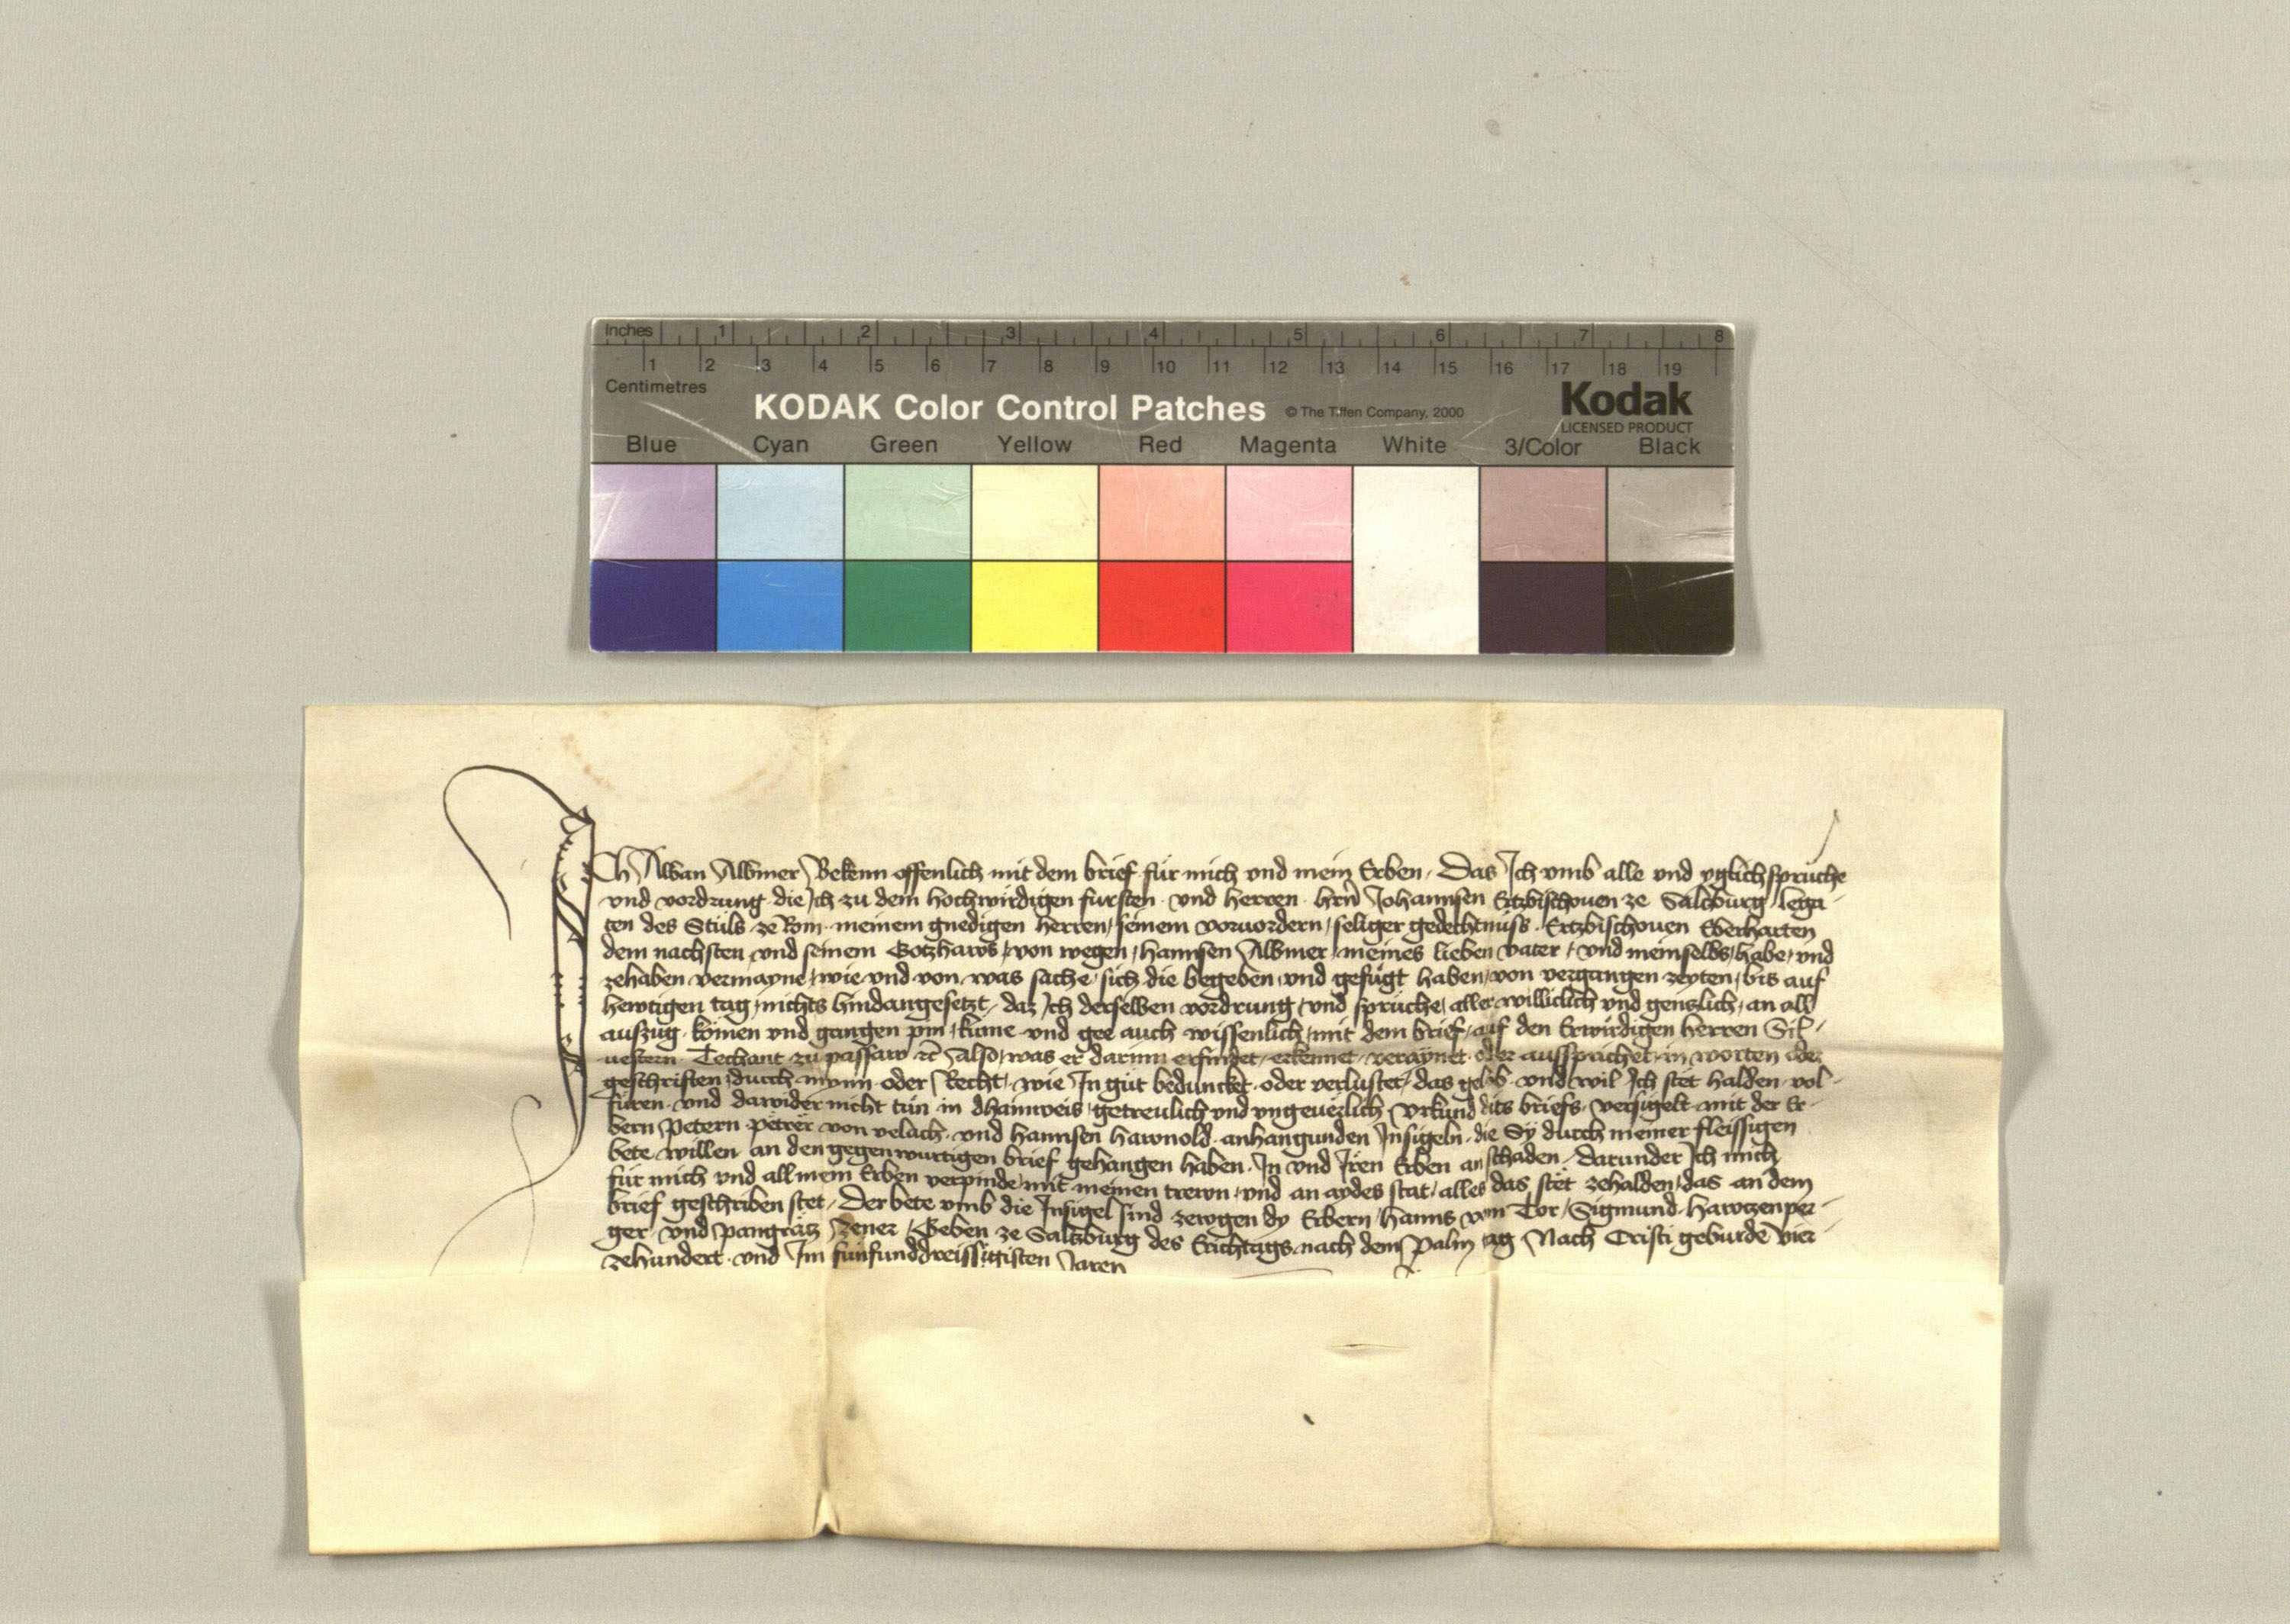 Inches 1 2 3 4 5 6 7 8
1 2 3 4 5 6 7 8 9 10 11 12 13 14 15 16 17 18 19
Centimetres
KODAK Color Control Patches © The Tiffen Company, 2000 Kodak
LICENSED PRODUCT
Blue Cyan Green Yellow Red Magenta White 3/Color Black
Ich Alban Albmer Bekenn offenlich mit dem brief für mich vnd mein Erben, Das Ich vmb alle vnd yglich sprüche
vnd vordrung die Ich zu dem hochwirdigen fürsten vnd herren hern Johannsen Ertzbischouen ze Saltzburg lega-
ten des Stůls ze Rom meinem gnedigen herren, seinem voruordern, seliger gedechtnüss Ertzbischouen Eberharten
dem nachsten vnd seinem Gotzhaws, von wegen, Hannsen Albmer meines lieben vater, vnd meinselbs, habe, vnd
zehaben vermayne, wie vnd von was sache, sich die begeben vnd gefügt haben, von vergangen zeyten, bis auf
hewtigen tag, nichts hindangesetzt, daz Ich derselben vordrung vnd sprüche, aller williclich vnd genzlich, an all
auszug komen vnd gangen pin, kume vnd gee auch wissenlich, mit dem brief, auf den Erwirdigen herren Sil-
uestern Techant zu passaw etc Also, was er darumb erfindet, erkennet, veraynet oder aussprichet, in worten oder
geschriften, durch mynn oder Recht, wie In gůt beduncket oder verlustet, das gelob vnd wil Ich stêt halden vol-
füren vnd dawider nicht tůn in dhainweis, getreulich vnd vngeuerlich Vrkund dits briefs, versigelt mit der Er-
bern Petern von velach vnd Hannsen Hawnold anhangunden Insigeln, die Sy durch meiner fleissigen
bete willen an den gegenwurtigen brief gehangen haben, In vnd Iren Erben an schaden, darunder Ich mich
für mich vnd all mein Erben verpinde, mit meinen trewn, vnd an aydes stat, alles das stêt zehalden, das an dem
brief geschriben stet, Der bete vmb die Insigel sind zewgen dy Erbern, Hanns vom Tor, Sigmund Hawczenper-
ger vnd Pangrätz Zener, Geben ze Saltzburg des Erichtags nach dem Palm tag Nach Cristi geburde vier-
zehundert vnd Im fünfunddreissigisten Jaren